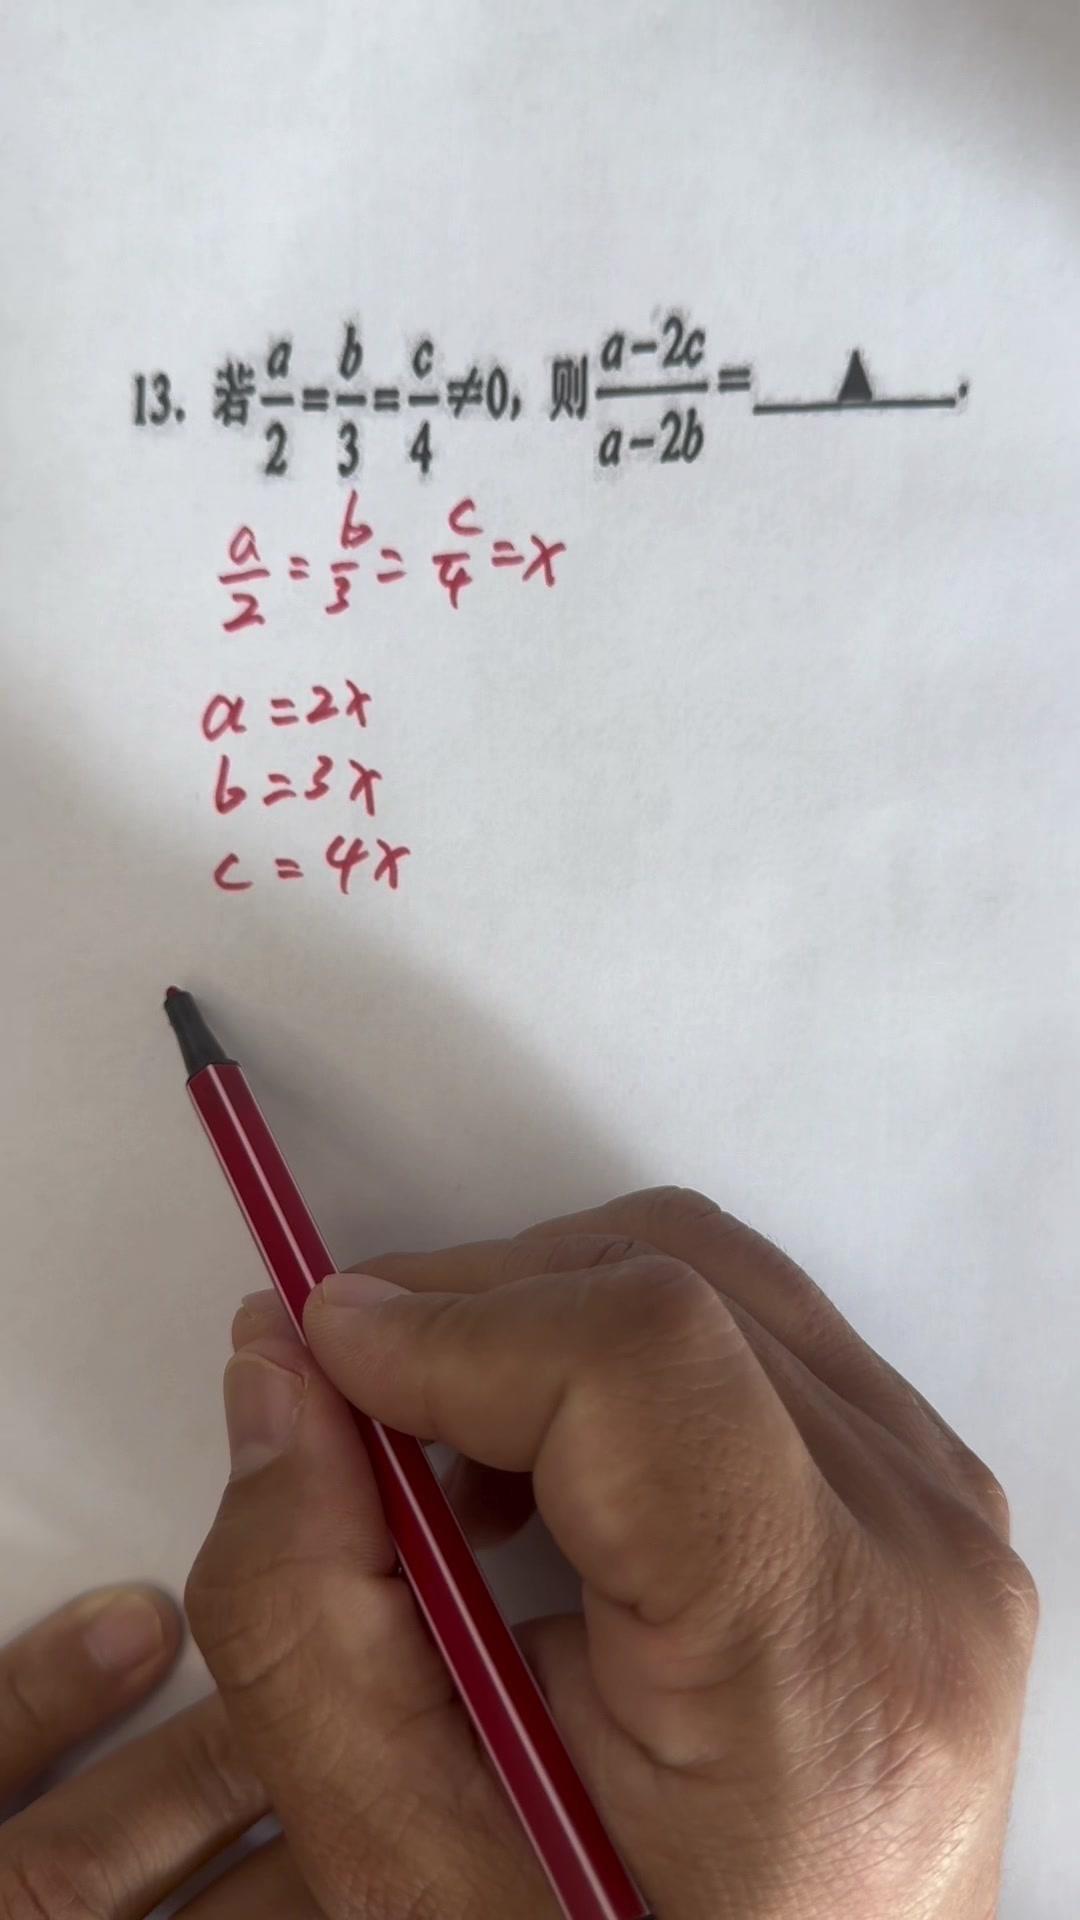 13. 若a/2=b/3=c/4≠0, 则(a-2c)/(a-2b)=____▲____.
a/2=b/3=c/4=x
a=2x
b=3x
c=4x